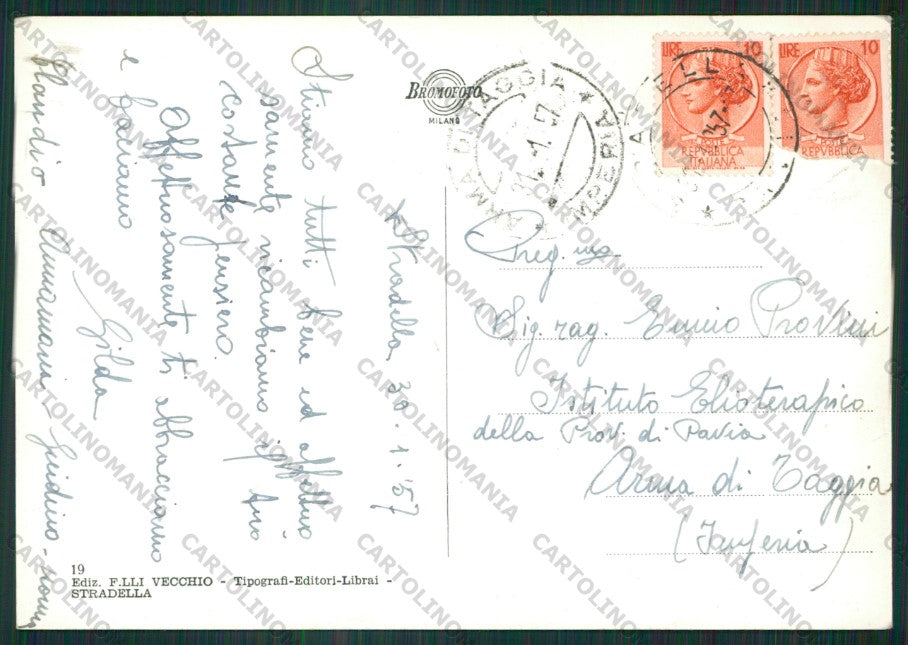 Stradella 30.1.'57
Stiamo tutti bene ed affettuo
samente ricambiamo il tuo
costante pensiero.
Affettuosamente ti abbracciamo
e baciamo
Gilda
Giudino - nonna
BROMOFOTO
MILANO
ARMA DI TAGGIA * IMPERIA *
31.-1.57
LIRE 10
POSTE
REPVBBLICA
ITALIANA
LIRE 10
POSTE
REPVBBLICA
Preg.mo
Sig. rag. Ennio Provini
Istituto Elioterapico
della Prov. di Pavia
Arma di Taggia
(Imperia)
19
Ediz. F.LLI VECCHIO - Tipografi-Editori-Librai -
STRADELLA
CARTOLINOMANIA